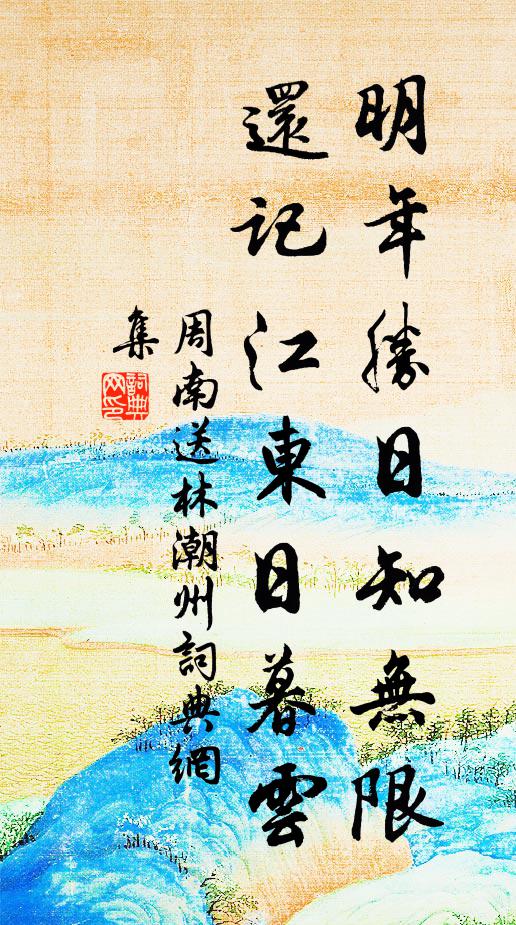 明年勝日知無限
還記江東日暮雲
周南送林潮州詞典網
集
詞典網印